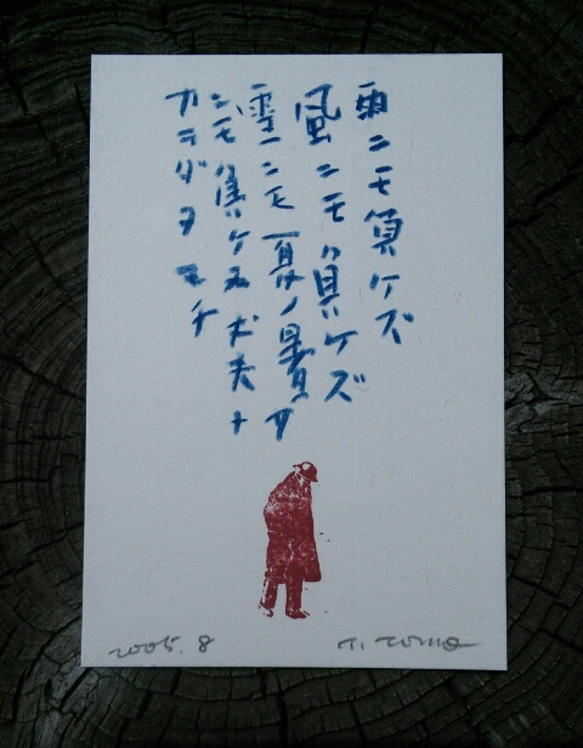 雨ニモ負ケズ
風ニモ負ケズ
雪ニモ夏ノ暑サ
ニモ負ケヌ丈夫ナ
カラダヲモチ
2005.8